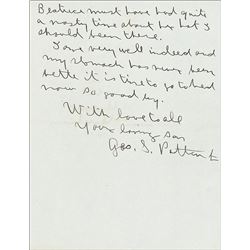 Beatrice must have had quite
a nasty time about her but I
should been there.
I am very well indeed and
my stomach has never been
bette it is time to go to bed
now so good by.
With love to all
Your loving son
Geo. S. Patton Jr